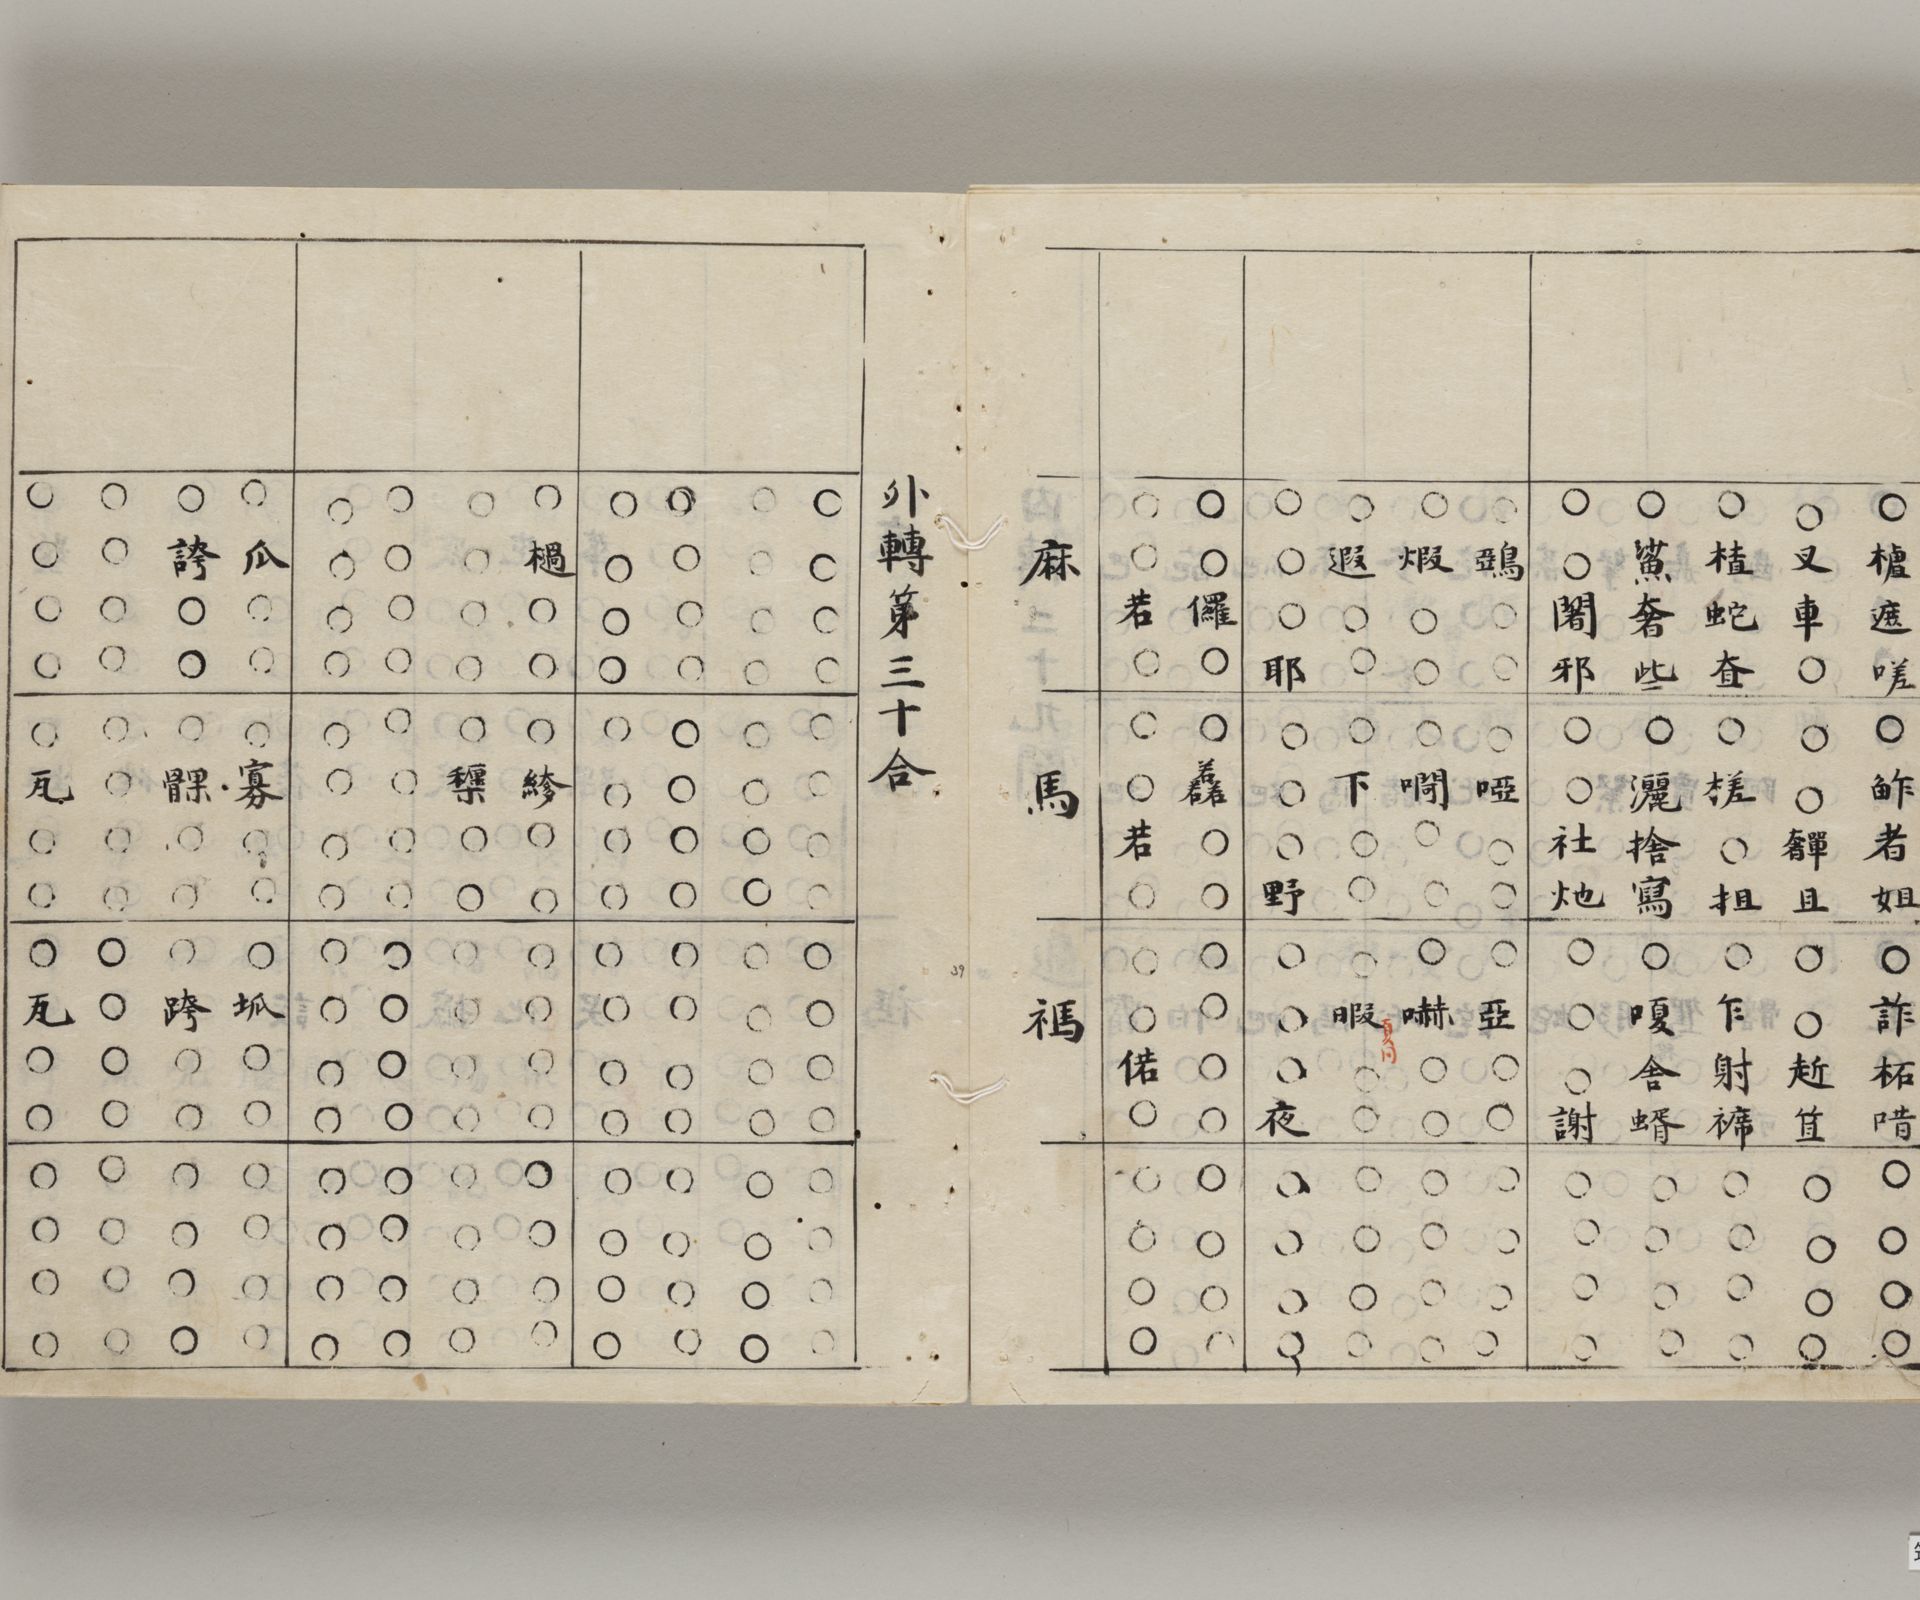 樝遮嗟鮓者姐詐柘唶
叉車奲且笡
楂蛇査槎抯乍射褯
鯊奢些灑捨寫嗄舍蝑
闍邪社灺謝
啞亞
煆嚇
遐下暇
耶野夜
儸
若若偌
麻馬禡
39
外轉第三十合
檛
瓜寡坬
誇髁跨
瓦瓦